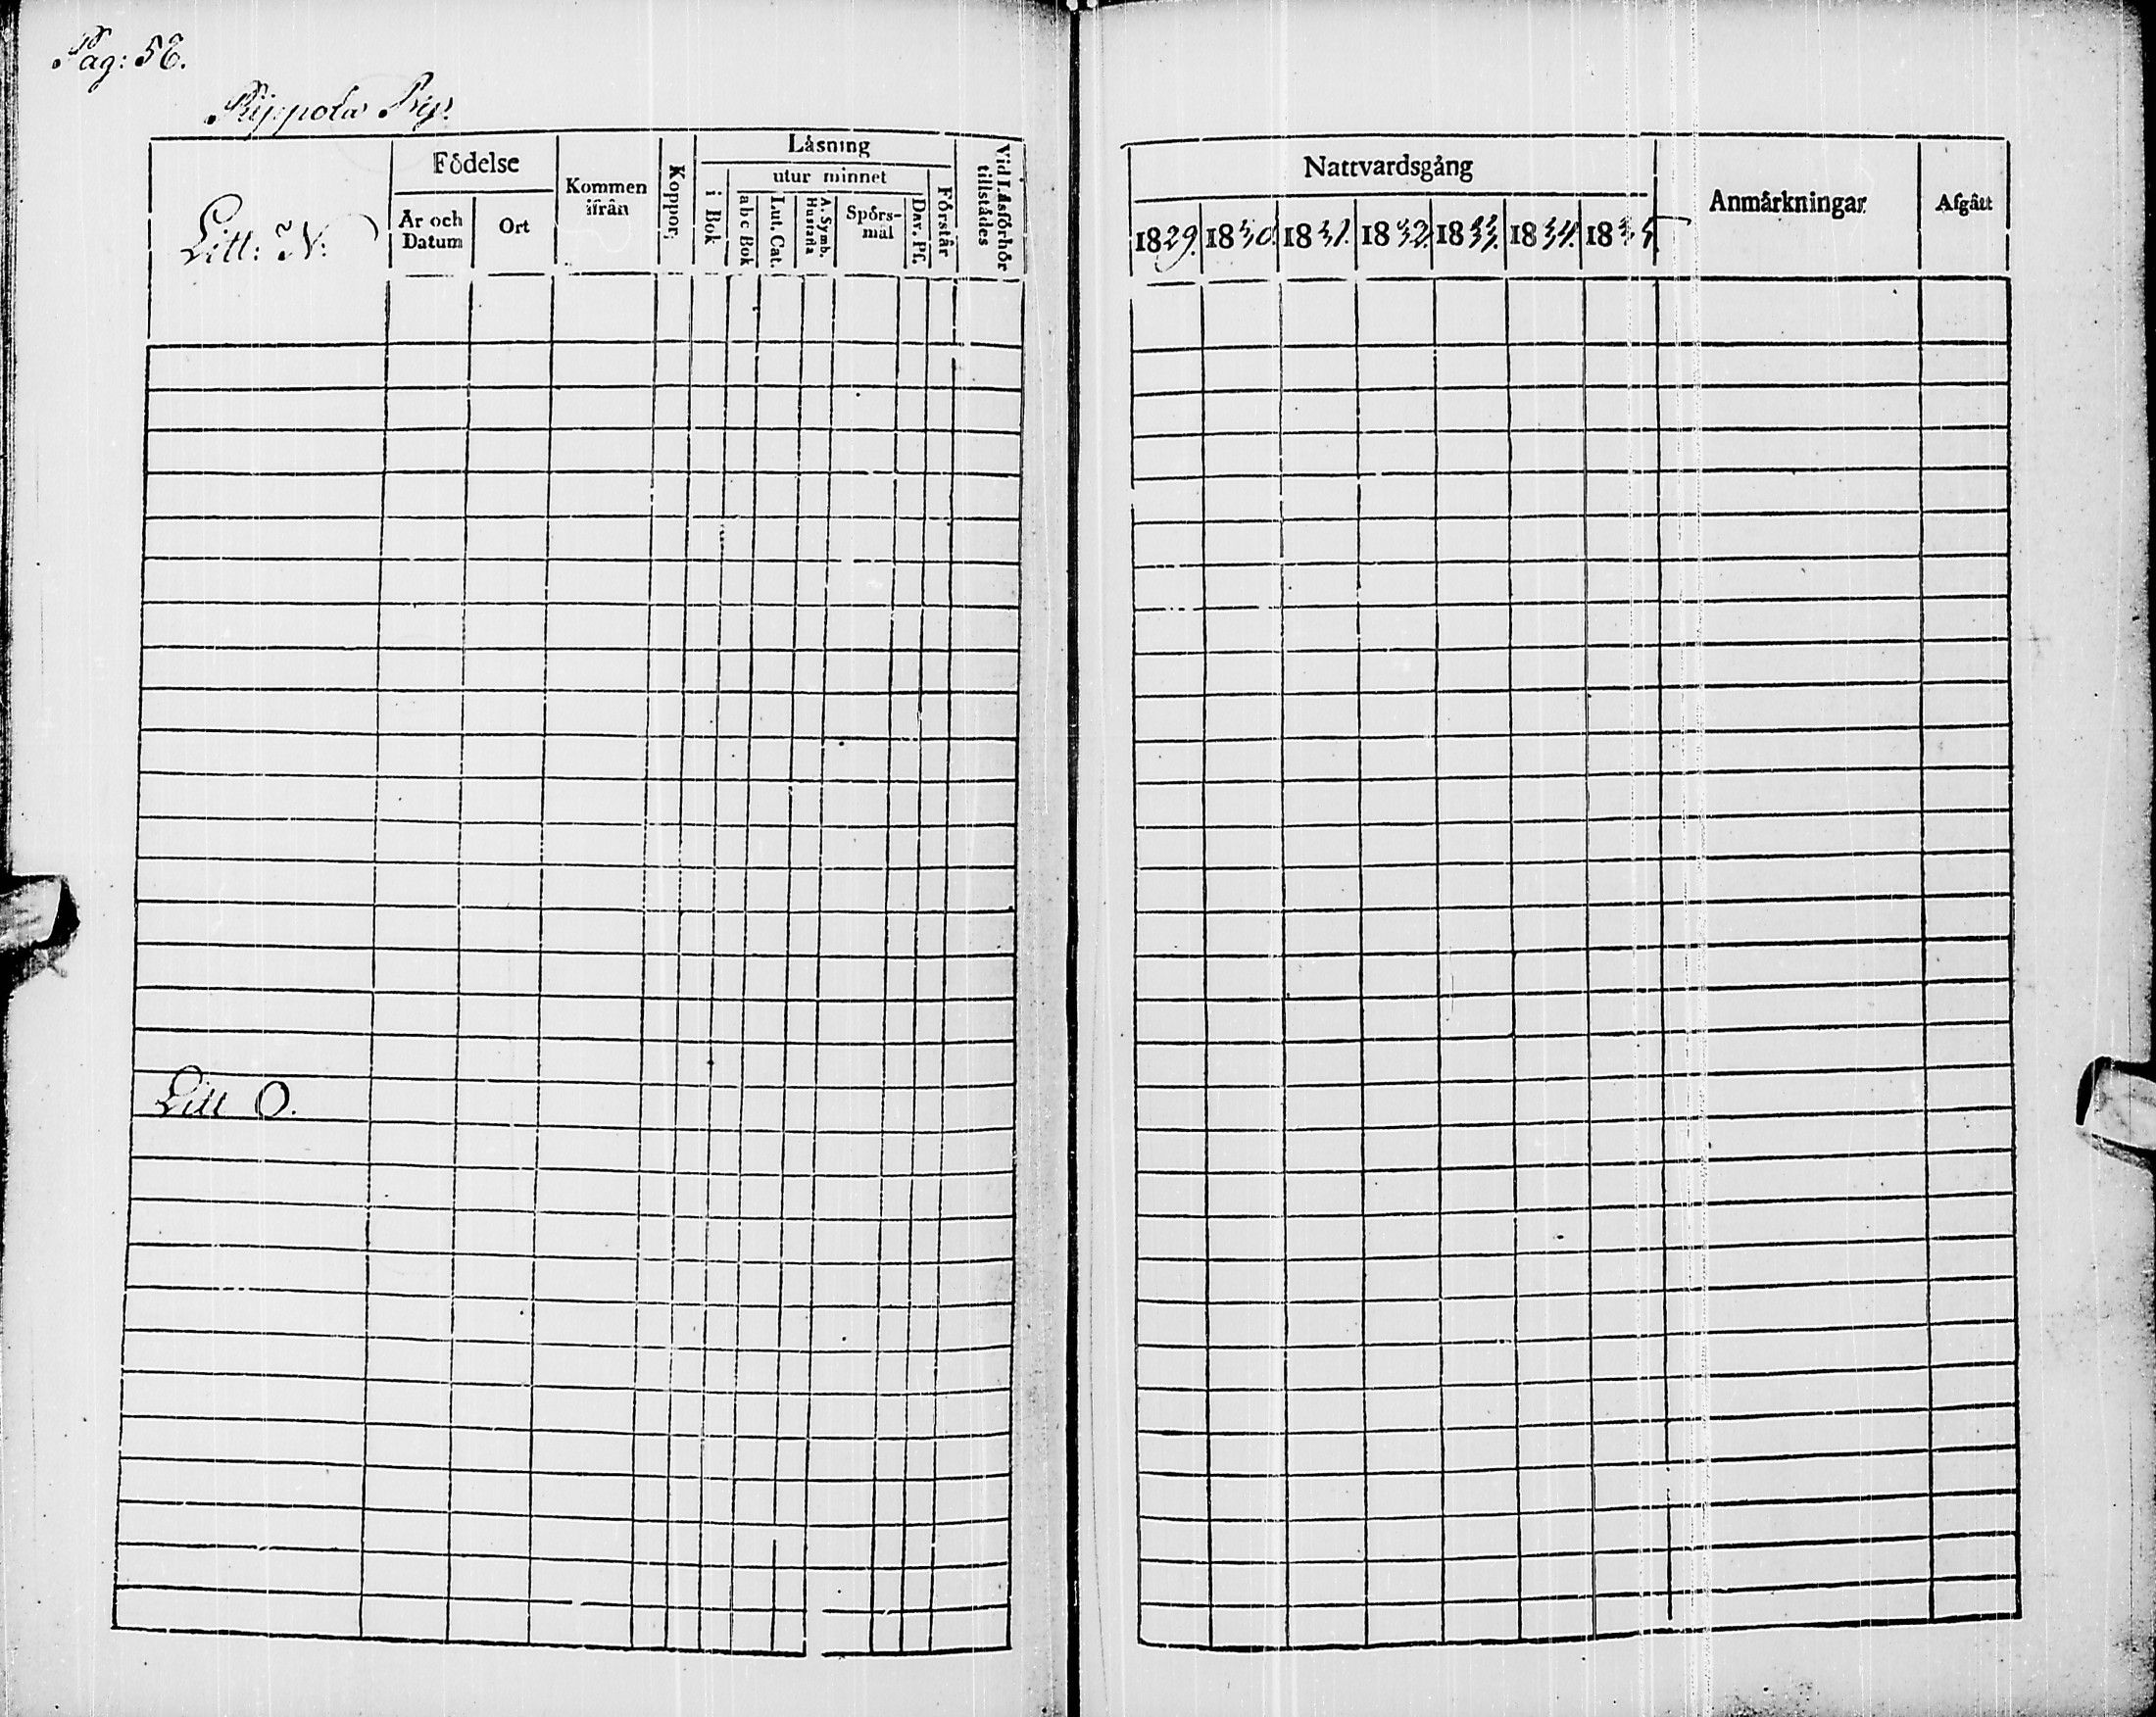 Pag: 56.
Rippola By.
Litt: N.
Födelse
År och Datum
Ort
Kommen ifrån
Koppor
Låsning
i Bok
utur minnet
abc Bok
Lut. Cat.
A. Symb. Hustafla
Spörsmål
Dav. Ps.
Förstår
Vid Låsförhör tillstådes
Nattvardsgång
1829. 1830. 1831. 1832. 1833. 1834. 1835.
Anmårkningar
Afgått
Litt O.